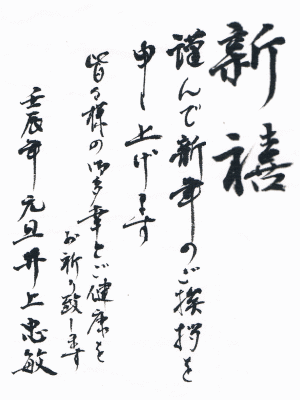 新禧
謹んで新年のご挨拶を
申し上げます
皆々様の御多幸とご健康を
お祈り致します
壬辰年 元旦 井上忠敏